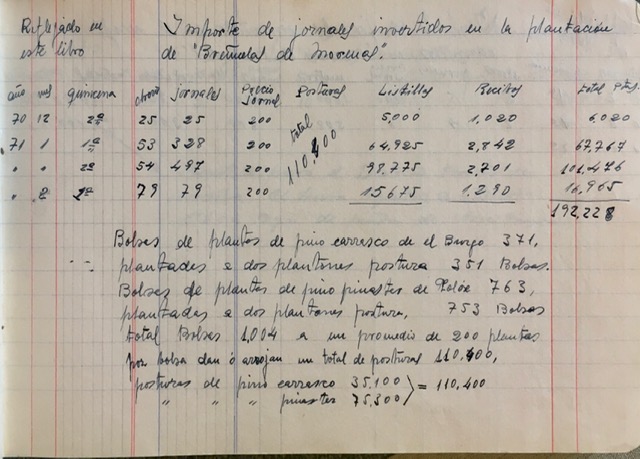 Reflejado en
este libro
Importe de jornales invertidos en la plantación
de "Breñales de Morenas".
año mes quincena obreros jornales Precio Jornal Posturas Listillas Recibos total Ptas.
70 12 2ª 25 25 200 5,000 1,020 6,020
71 1 1ª 53 328 200 64,925 2,842 67,767
" " 2ª 54 497 200 98,775 2,701 101,476
" 2 1ª 79 79 200 15675 1.290 16,965
total
110,400
192,228
Bolsas de plantas de pino carrasco de el Burgo 371,
plantadas a dos plantones postura 351 Bolsas.
Bolsas de plantas de pino pinastes de 763,
plantadas a dos plantones postura, 753 Bolsas
total Bolsas 1,004 a un promedio de 200 plantas
por bolsa dan ó arrojan un total de posturas 110,400,
posturas de pino carrasco 35,100 } = 110,400
" " " pinastes 75,300